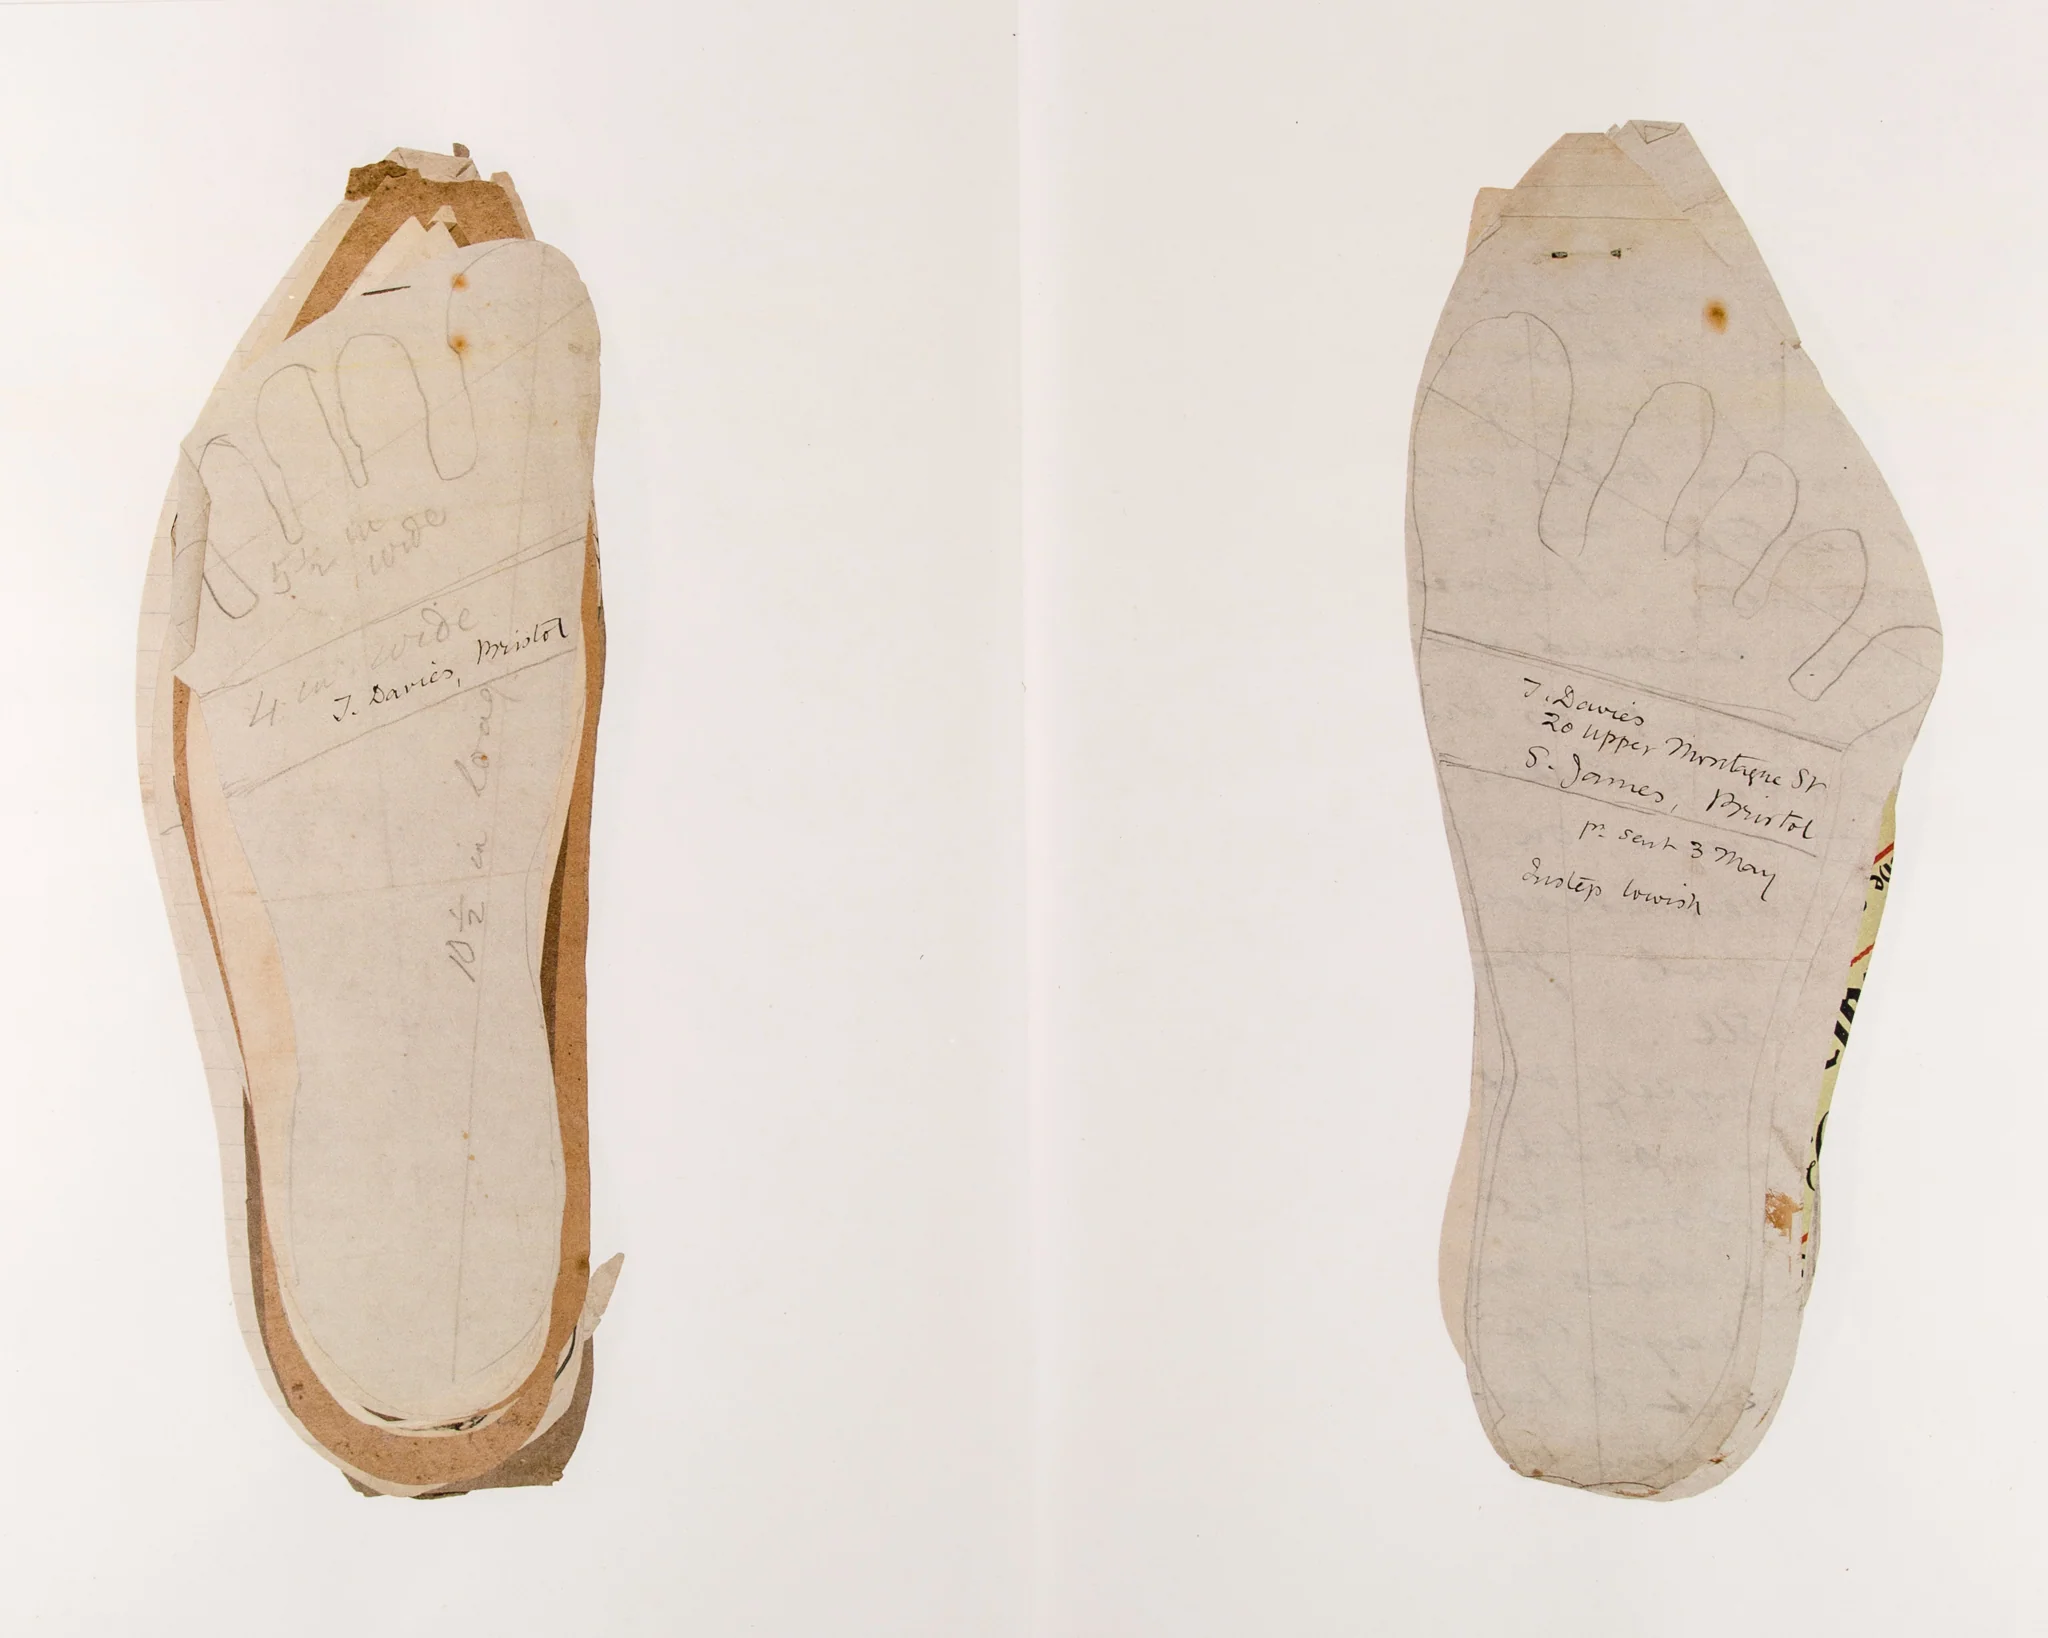 5½ in
wide
4 in wide
J. Davies, Bristol
10½ in Long
J. Davies
20 Upper Montague St
S. James, Bristol
pr sent 3 May
Instep lowish